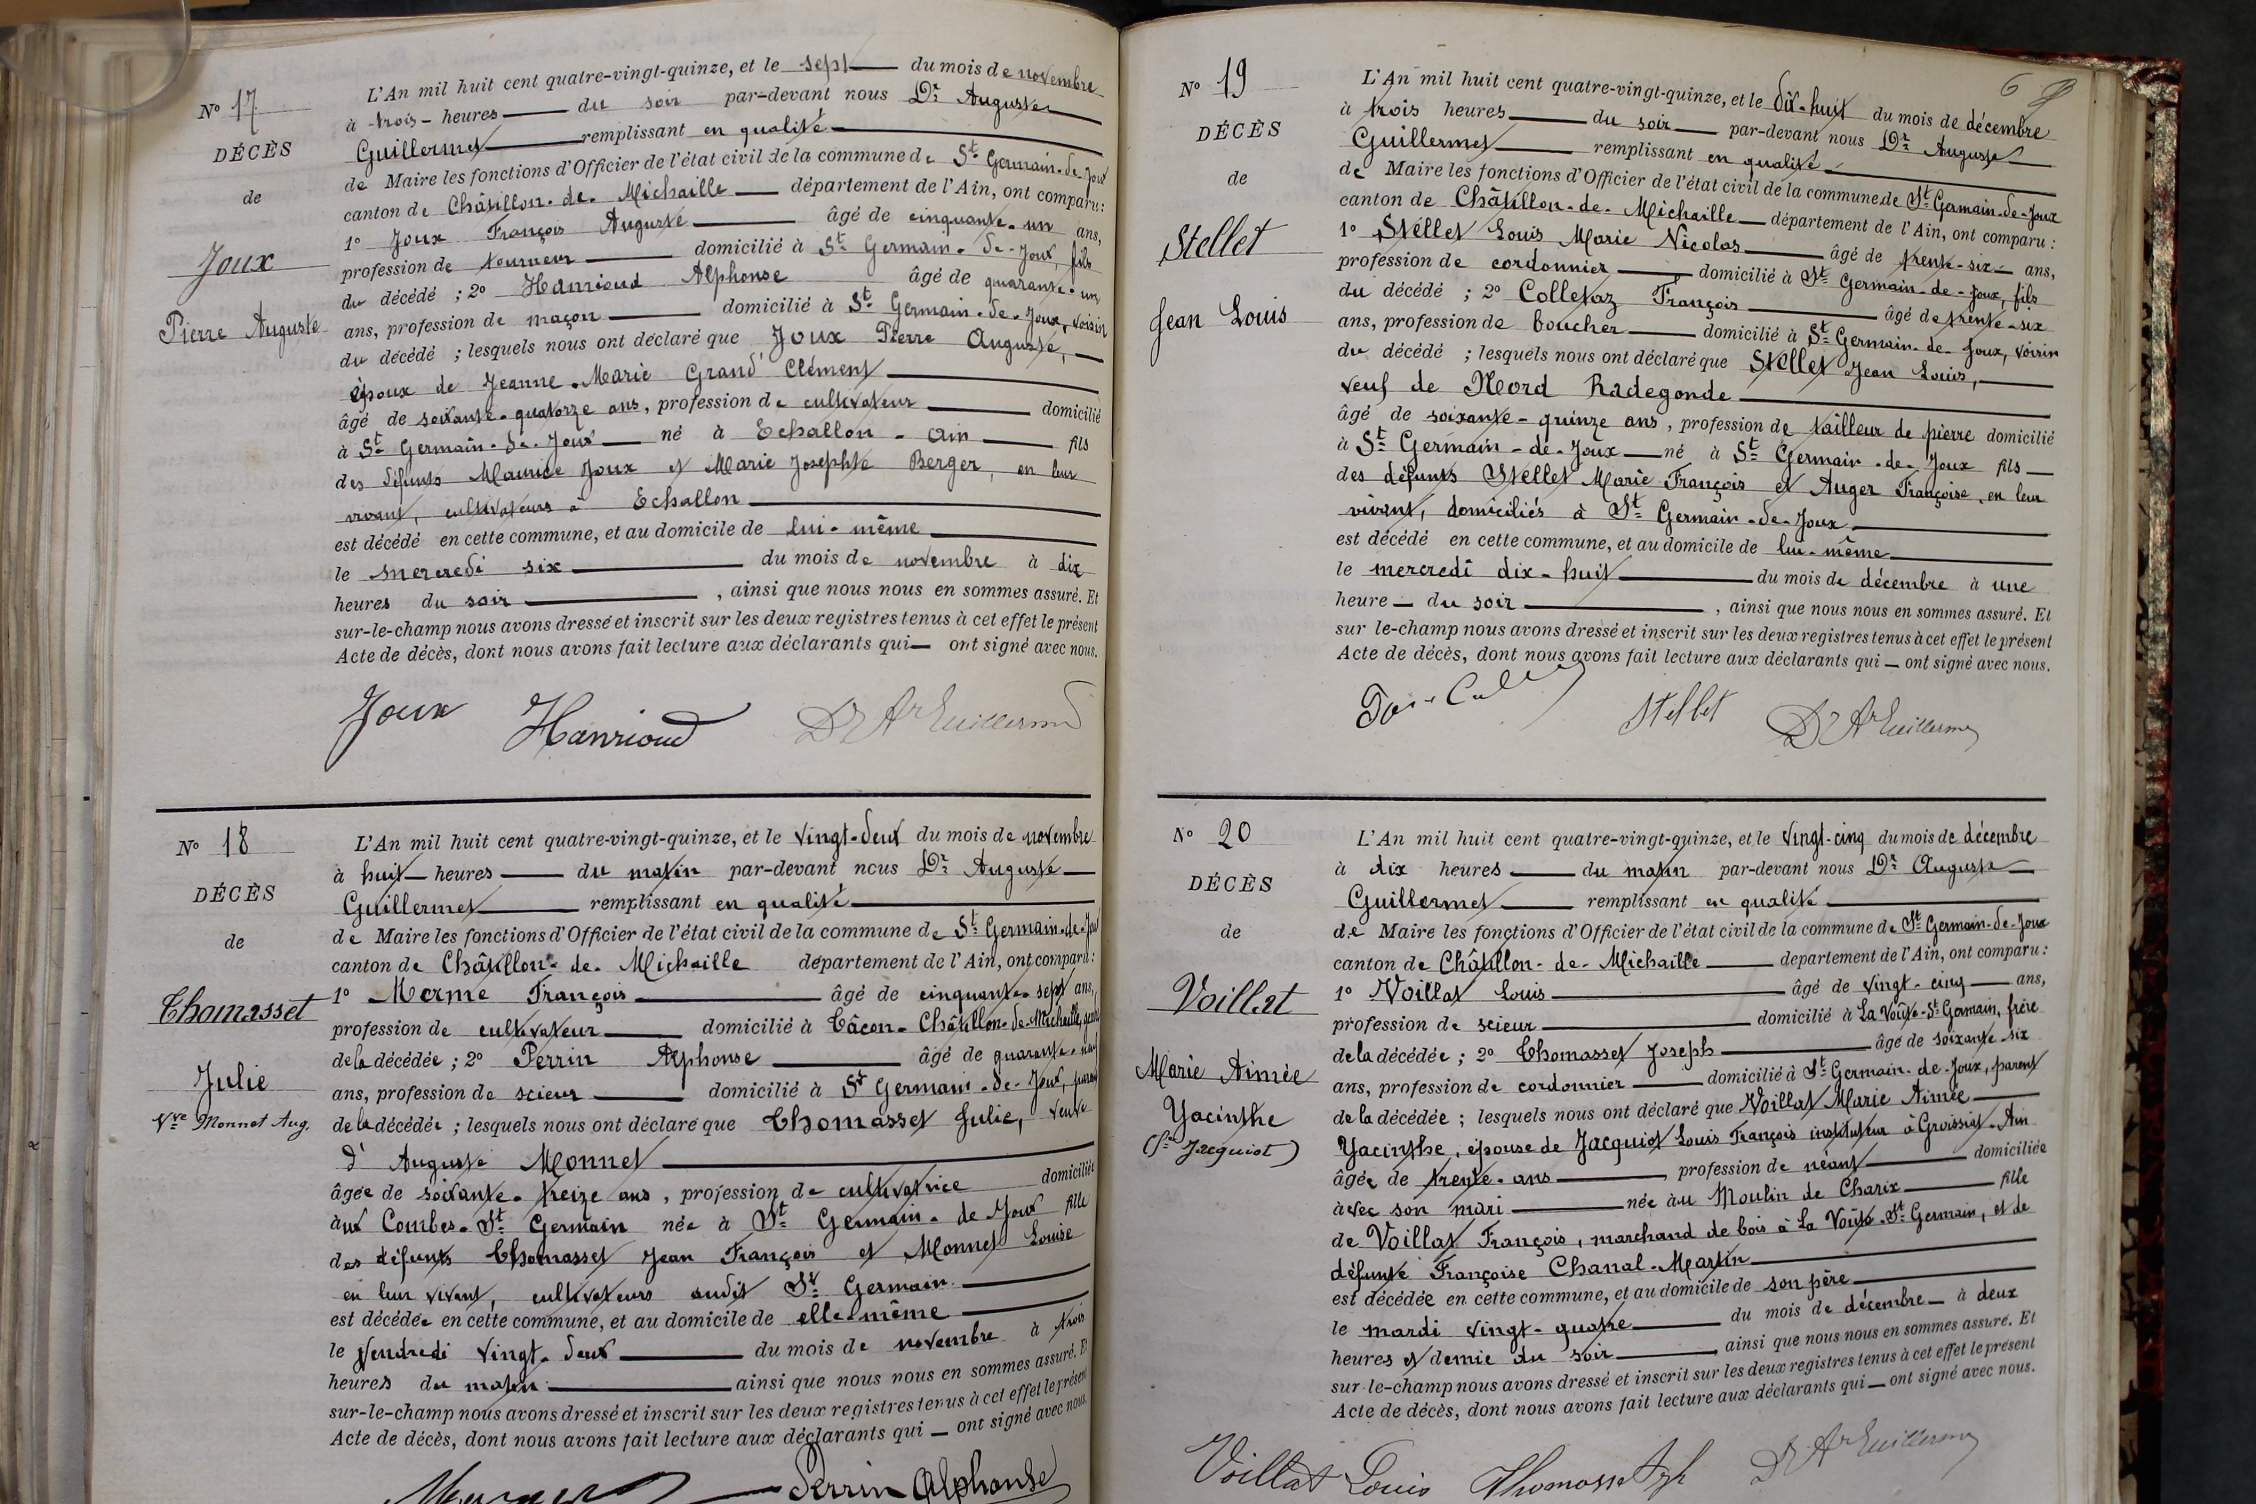 N° 17
DÉCÈS
de
Joux
Pierre Auguste
L'An mil huit cent quatre-vingt-quinze, et le sept du mois de novembre
à trois heures du soir par-devant nous Dr Auguste
Guillermet remplissant en qualité
de Maire les fonctions d'Officier de l'état civil de la commune de St Germain-de-Joux
canton de Châtillon-de-Michaille département de l'Ain, ont comparu:
1° Joux François Auguste âgé de cinquante-un ans,
profession de tourneur domicilié à St Germain-de-Joux, fils
du décédé ; 2° Hanrioud Alphonse âgé de quarante-un
ans, profession de maçon domicilié à St Germain-de-Joux, voisin
du décédé ; lesquels nous ont déclaré que Joux Pierre Auguste,
époux de Jeanne-Marie Grand Clément
âgé de soixante-quatorze ans, profession de cultivateur domicilié
à St Germain-de-Joux né à Echallon-Ain fils
des défunts Maurice Joux et Marie Josephte Berger, en leur
vivant, cultivateurs à Echallon
est décédé en cette commune, et au domicile de lui-même
le mercredi six du mois de novembre à dix
heures du soir , ainsi que nous nous en sommes assuré. Et
sur-le-champ nous avons dressé et inscrit sur les deux registres tenus à cet effet le présent
Acte de décès, dont nous avons fait lecture aux déclarants qui ont signé avec nous.
Joux Hanrioud Dr Ate Guillermet
N° 18
DÉCÈS
de
Thomasset
Julie
Vve Monnet Aug.
L'An mil huit cent quatre-vingt-quinze, et le vingt-deux du mois de novembre
à huit heures du matin par-devant nous Dr Auguste
Guillermet remplissant en qualité
de Maire les fonctions d'Officier de l'état civil de la commune de St Germain-de-Joux
canton de Châtillon-de-Michaille département de l'Ain, ont comparu:
1° Merme François âgé de cinquante-sept ans,
profession de cultivateur domicilié à Tâcon-Châtillon-de-Michaille,
de la décédée ; 2° Perrin Alphonse âgé de quarante-neuf
ans, profession de scieur domicilié à St Germain-de-Joux, parent
de la décédée ; lesquels nous ont déclaré que Thomasset Julie, veuve
d'Auguste Monnet
âgée de soixante-treize ans, profession de cultivatrice domiciliée
aux Combes-St Germain née à St Germain-de Joux fille
des défunts Thomasset Jean François et Monnet Louise
en leur vivant, cultivateurs audit St Germain
est décédée en cette commune, et au domicile de elle-même
le vendredi vingt-deux du mois de novembre à trois
heures du matin ainsi que nous nous en sommes assuré. Et
sur-le-champ nous avons dressé et inscrit sur les deux registres tenus à cet effet le présent
Acte de décès, dont nous avons fait lecture aux déclarants qui ont signé avec nous.
Perrin Alphonse
6
N° 19
DÉCÈS
de
Stellet
Jean Louis
L'An mil huit cent quatre-vingt-quinze, et le dix-huit du mois de décembre
à trois heures du soir par-devant nous Dr Auguste
Guillermet remplissant en qualité
de Maire les fonctions d'Officier de l'état civil de la commune de St Germain-de-Joux
canton de Châtillon-de-Michaille département de l'Ain, ont comparu :
1° Stellet Louis Marie Nicolas âgé de trente-six ans,
profession de cordonnier domicilié à St Germain-de-Joux, fils
du décédé ; 2° Colletaz François âgé de trente-six
ans, profession de boucher domicilié à St Germain-de-Joux, voisin
du décédé ; lesquels nous ont déclaré que Stellet Jean Louis,
veuf de Mord Radegonde
âgé de soixante-quinze ans, profession de tailleur de pierre domicilié
à St Germain-de-Joux né à St Germain-de-Joux fils
des défunts Stellet Marie François et Auger Françoise, en leur
vivant, domiciliés à St Germain-de-Joux
est décédé en cette commune, et au domicile de lui-même
le mercredi dix-huit du mois de décembre à une
heure du soir , ainsi que nous nous en sommes assuré. Et
sur le-champ nous avons dressé et inscrit sur les deux registres tenus à cet effet le présent
Acte de décès, dont nous avons fait lecture aux déclarants qui ont signé avec nous.
Stellet Dr Ate Guillermet
N° 20
DÉCÈS
de
Voillat
Marie Aimée
Yacinthe
(fe Jacquiot)
L'An mil huit cent quatre-vingt-quinze, et le vingt-cinq du mois de décembre
à dix heures du matin par-devant nous Dr Auguste
Guillermet remplissant en qualité
de Maire les fonctions d'Officier de l'état civil de la commune de St Germain-de-Joux
canton de Châtillon-de-Michaille département de l'Ain, ont comparu :
1° Voillat Louis âgé de vingt-cinq ans,
profession de scieur domicilié à La Voûte-St Germain, frère
de la décédée ; 2° Thomasset Joseph âgé de soixante-six
ans, profession de cordonnier domicilié à St Germain-de-Joux, parent
de la décédée ; lesquels nous ont déclaré que Voillat Marie Aimée
Yacinthe, épouse de Jacquiot Louis François instituteur à Groissiat-Ain
âgée de trente-ans profession de néant domiciliée
avec son mari née au Moulin de Charix fille
de Voillat François, marchand de bois à La Voûte-St Germain, et de
défunte Françoise Chanal-Martin
est décédée en cette commune, et au domicile de son père
le mardi vingt-quatre du mois de décembre à deux
heures et demie du soir , ainsi que nous nous en sommes assuré. Et
sur-le-champ nous avons dressé et inscrit sur les deux registres tenus à cet effet le présent
Acte de décès, dont nous avons fait lecture aux déclarants qui ont signé avec nous.
Voillat Louis Thomasset Jph Dr Ate Guillermet